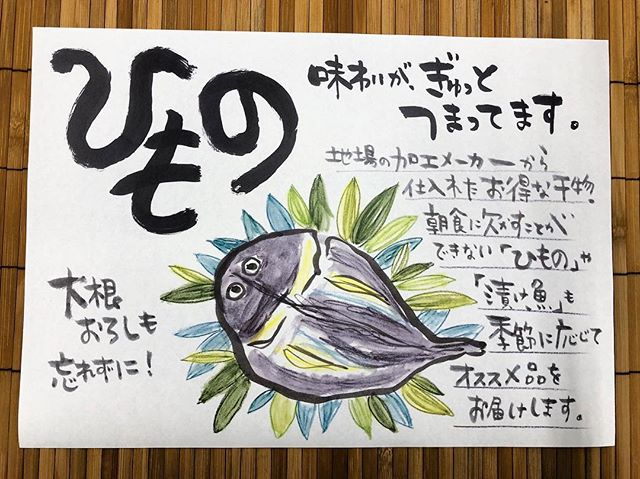 ひもの
味わいが、ぎゅっと
つまってます。
地場の加工メーカーから
仕入れたお得な干物。
朝食に欠かすことが
できない「ひもの」や
「漬け魚」も
季節に応じて
オススメ品を
お届けします。
大根
おろしも
忘れずに!